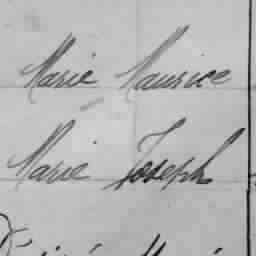 Marie Maurice
Marie Joseph